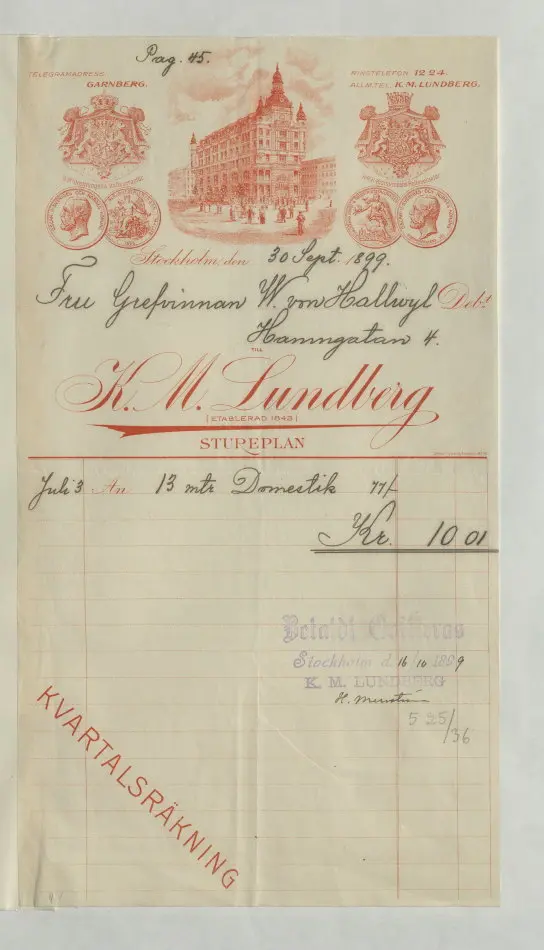 Pag. 45.
TELEGRAMADRESS
GARNBERG.
RIKSTELEFON 1224.
ALLM.TEL. K. M. LUNDBERG.
Stockholm, den 30 Sept. 1899.
Fru Grefvinnan W. von Hallwyl Debt
Hamngatan 4.
TILL
K. M. Lundberg
(ETABLERAD 1843)
STUREPLAN
Juli 3 An 13 mtr Domestik 77/-
Kr. 10 01
Betaldt Qvitteras
Stockholm d. 16/10 1899
K. M. LUNDBERG
5 25/36
KVARTALSRÄKNING